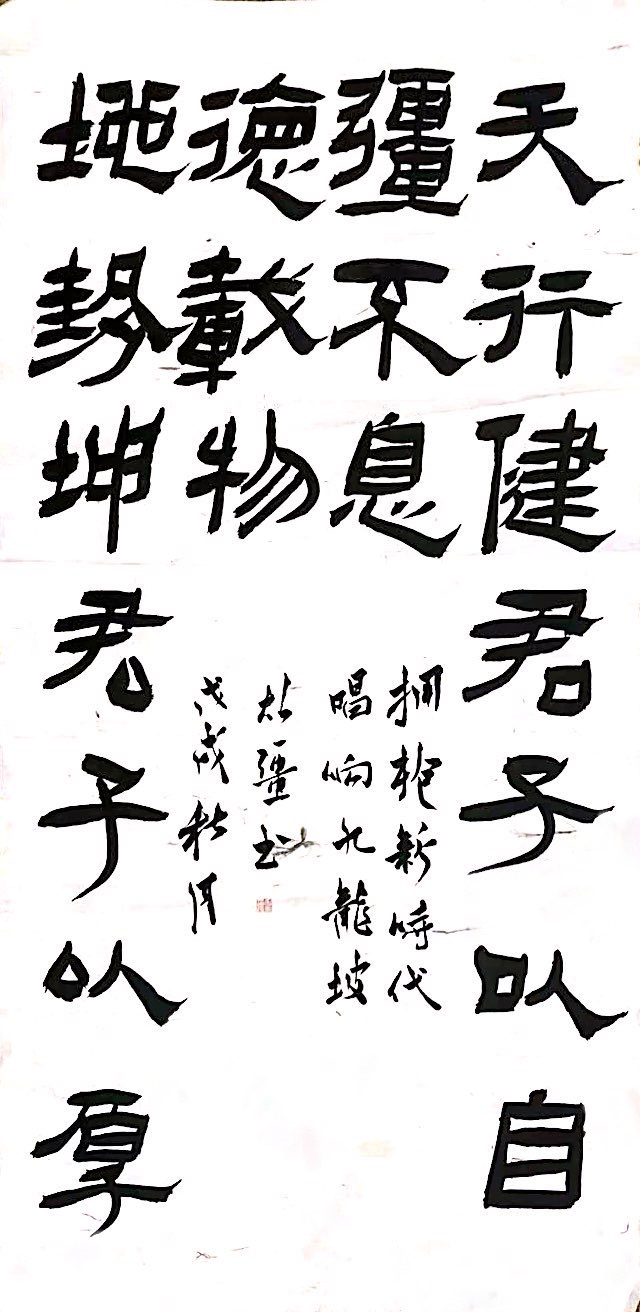 天行健君子以自
彊不息
地勢坤君子以厚
德載物
拥抱新時代
唱响九龍坡
彊书
戊戌秋月